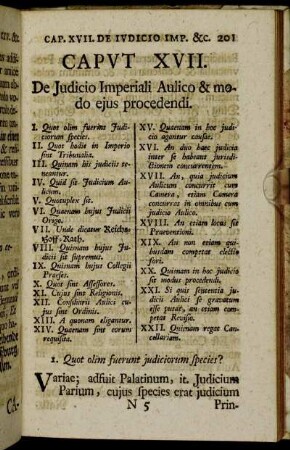 CAP. XVII. DE IVDICIO IMP. &c. 201
CAPVT XVII.
De Judicio Imperiali Aulico & mo-
do ejus procedendi.
I. Quot olim fuerint Judi-
ciorum species.
II. Quot hodie in Imperio
sint Tribunalia.
III. Quinam iis judiciis te-
neantur.
IV. Quid sit Judicium Au-
licum.
V. Quotuplex sit.
VI. Quaenam hujus Judicii
Origo.
VII. Unde dicatur Reichs-
Hoff-Rath.
VIII. Quinam hujus Ju-
dicii sit supremus.
IX. Quinam hujus Collegii
Praeses.
X. Quot sint Assessores.
XI. Cujus sint Religionis.
XII. Consiliarii Aulici cu-
jus sint Ordinis.
XIII. A quonam eligantur.
XIV. Quaenam sint eorum
requisita.
XV. Quaenam in hoc judi-
cio agantur causae.
XVI. An duo haec judicia
inter se habeant jurisdi-
ctionem concurrentem.
XVII. An, quia judicium
Aulicum concurrit cum
Camera, etiam Camera
concurrat in omnibus cum
judicio Aulico.
XVIII. An etiam locus sit
Praeventioni.
XIX. An non etiam qui-
busdam competat electio
fori.
XX. Quinam in hoc judicio
sit modus procedendi.
XXI. Si quis sententia ju-
dicii Aulici se gravatum
esse putat, an etiam com-
petat Revisio.
XXII. Quinam regat Can-
cellariam.
1. Quot olim fuerunt judiciorum species?
Variae; adfuit Palatinum, it. Judicium
Parium, cujus species erat judicium
N 5 Prin-